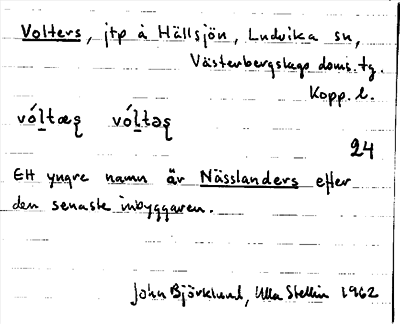 Volters, jtp å Hällsjön, Ludvika sn,
Västerbergslags doms. tg.
Kopp. l.
vóltæʂ vóltəʂ
24
Ett yngre namn är Nässlanders efter
den senaste inbyggaren.
John Björklund, Ulla Stellin 1962